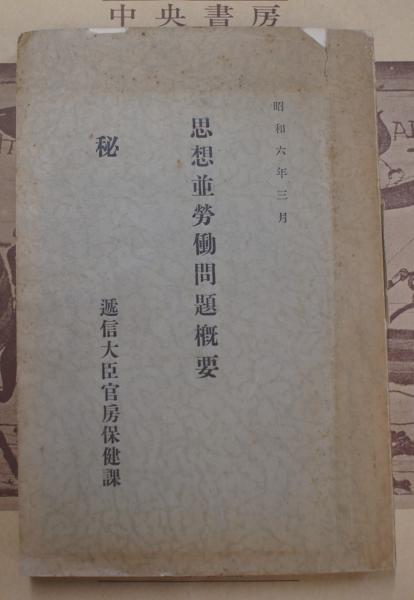 中央書房
昭和六年三月
思想並勞働問題概要
秘
遞信大臣官房保健課